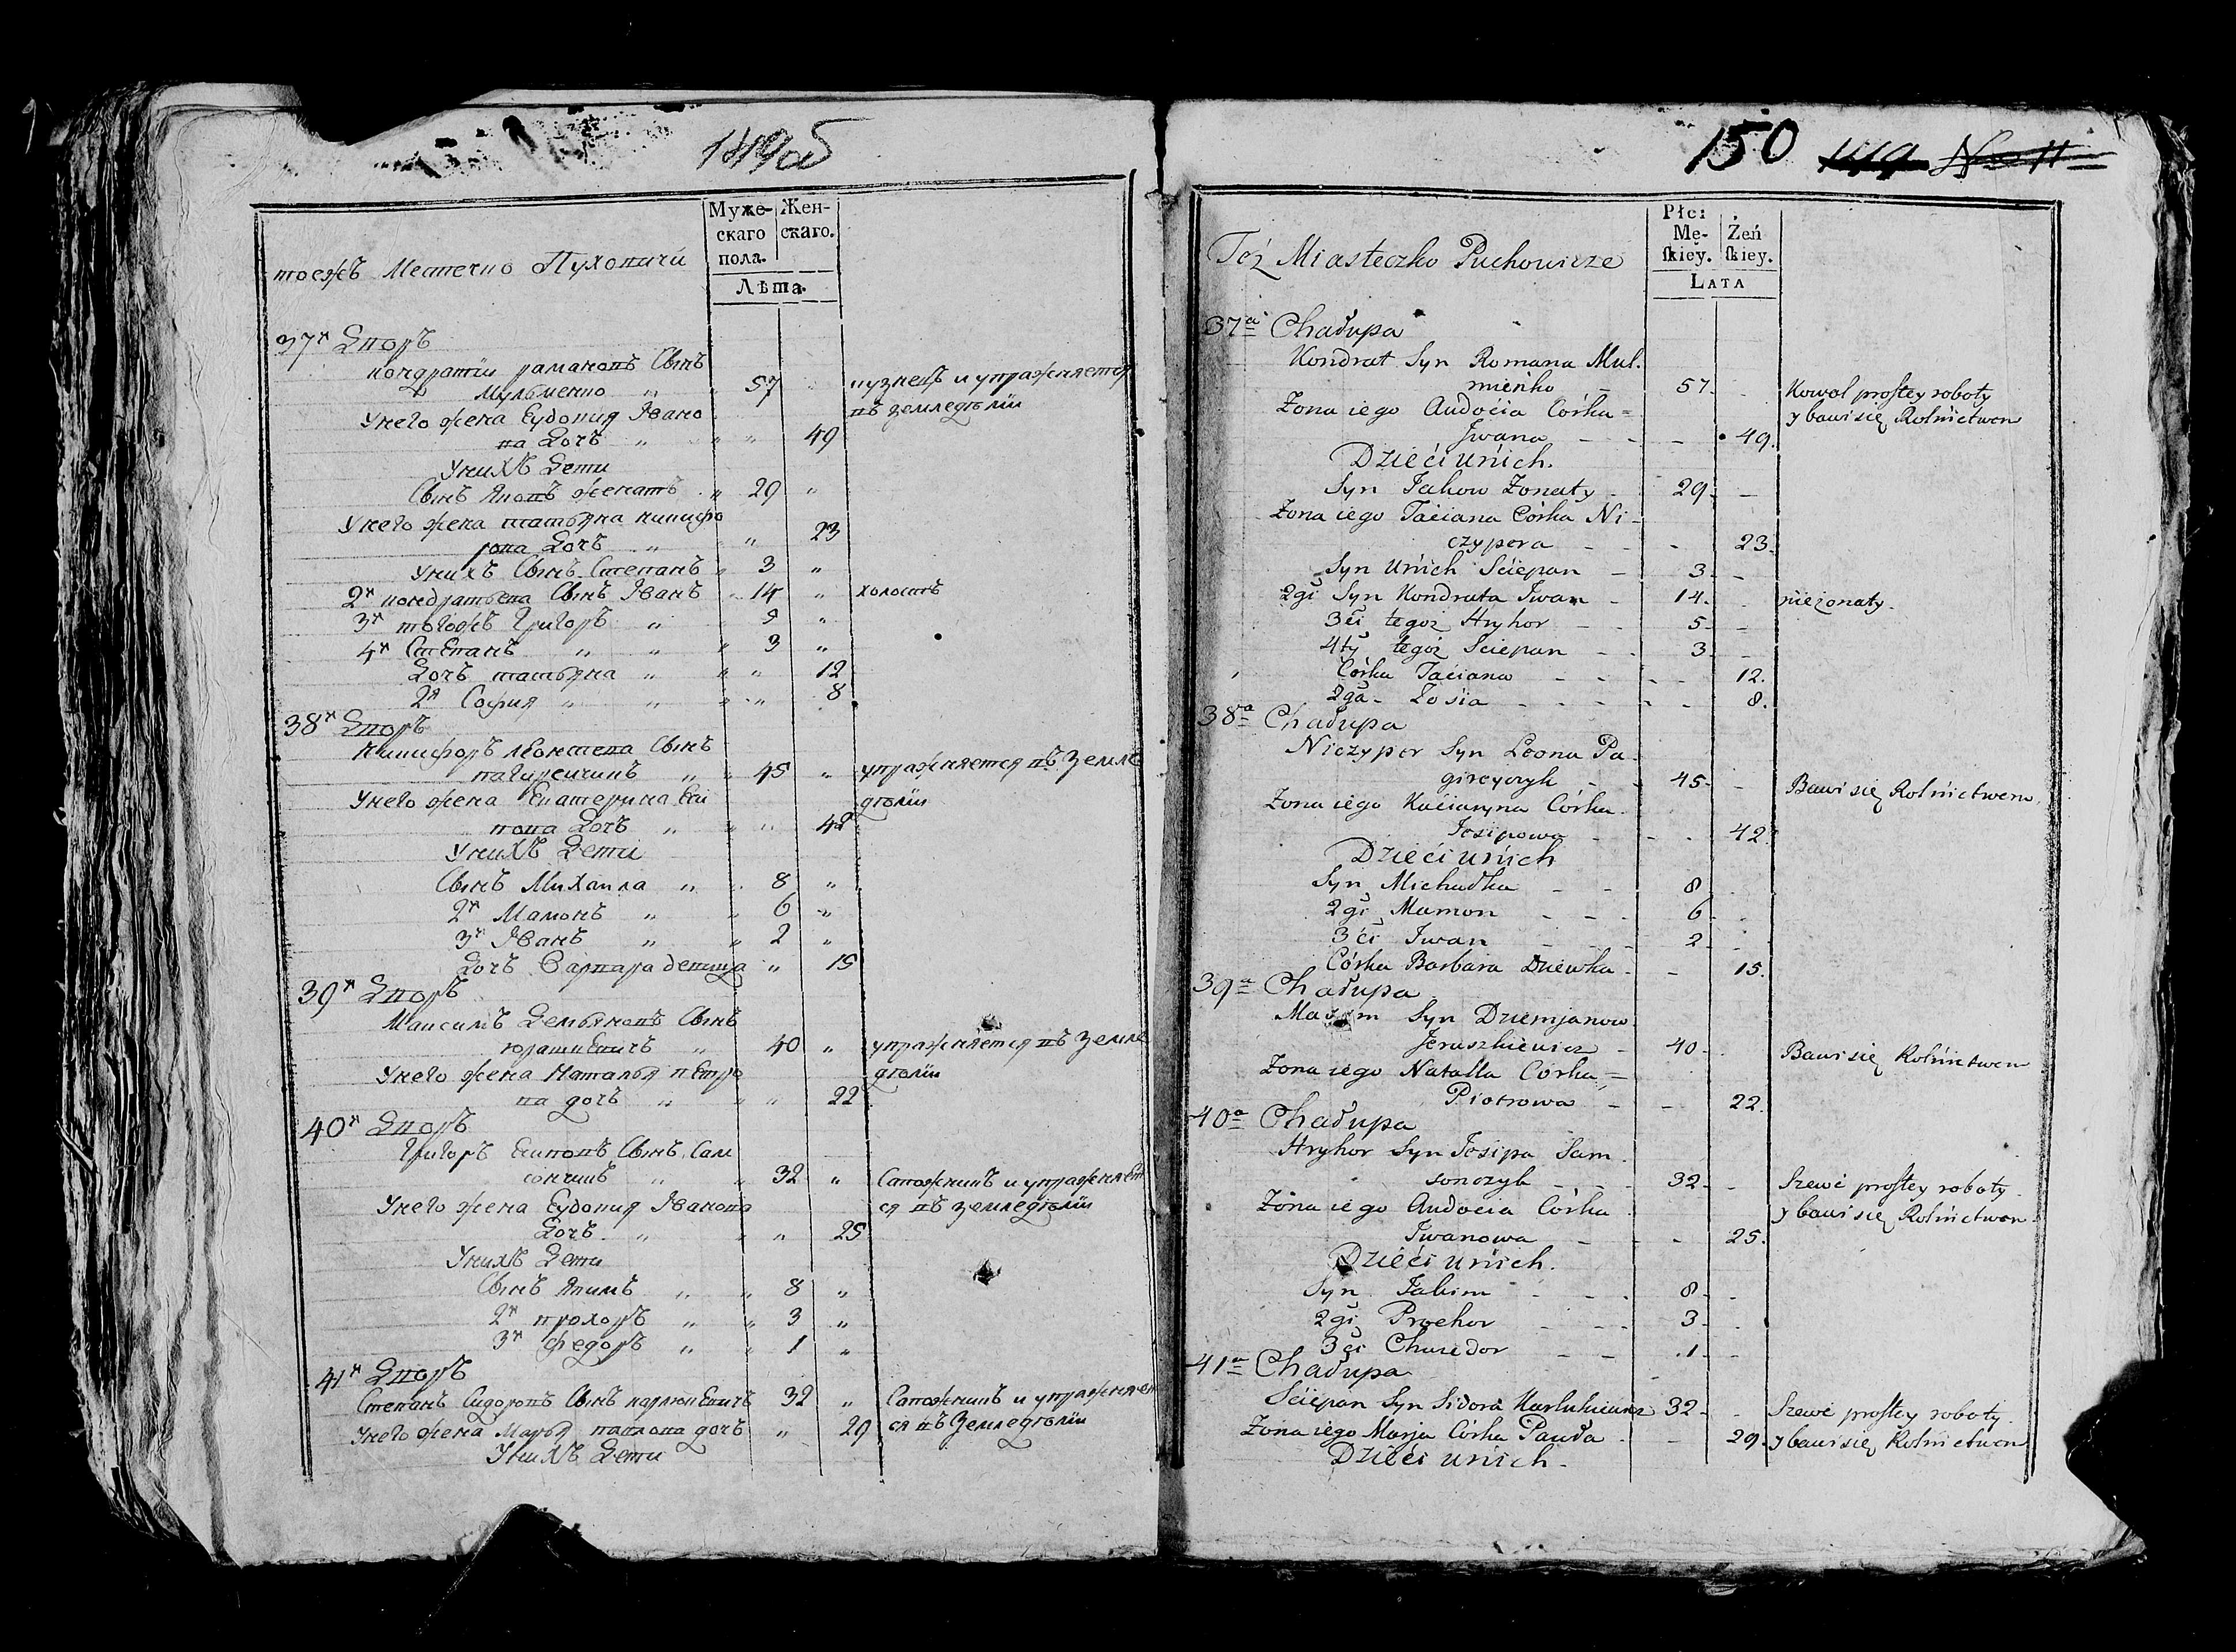 149об
Муже-
скаго
пола.
Жен-
скаго.
Лѣта.
тоежъ Местечко Пуховичи
37й Дворъ
кондратiй рамановъ Сынъ
Мульменко " 57 кузнецъ и упражняется
въ земледелiи
Унего жена Еудокия Ивано
ва Дочъ " " " 49
УнихЪ Дети
Сынъ Яковъ женатъ " 29 "
Унего жена татьяна никифо
рова Дочъ " " 23
Унихъ Сынъ Степанъ " 3 "
2й кондратьева Сынъ Иванъ " 14 " холостъ
3й тогожъ Григоръ " 5 "
4й Степанъ " " " 3 "
Дочъ татьяна " " " 12
2я София " " " " 8
38й Дворъ
Никифоръ леонтева Сынъ
пагиреичикъ " " 45 " упражняется въ Земле
делiи
Унего жена Екатерина
пова Дочъ " " " 42
УнихЪ Дети
Сынъ Михаила " " 8 "
2й Мамонъ " " 6 "
3й Иванъ " " 2 "
Дочъ Варвара девица " 15
39й Дворъ
Максимъ Демьяновъ Сынъ
юрашкевичъ " 40 " упражняется въ Земле
делiи
Унего жена Наталья петро
ва дочъ " " " 22
40й Дворъ
Григоръ Есиповъ Сынъ Сам
сончикъ " " 32 " Сапожникъ и упражняет
ся въ земледелiи
Унего жена Еудокия Иванова
Дочъ " " " 25
УнихЪ Дети
Сынъ Якимъ " " 8 "
2й прохоръ " " 3 "
3й федоръ " " 1 "
41й Дворъ
Степанъ Сидоровъ Сынъ карлюкевичъ 32 " Сапожникъ и упражняет
Унего жена Марья павлова дочъ " 29 ся въ Земледелiи
УнихЪ Дети
150 149
Płci
Mę-
skiey.
Zeń
skiey.
LATA
Toż Miasteczko Puchowicze
37a Chałupa
Kondrat Syn Romana Mul-
mieńko - 57 - Kowal prostey roboty
y bawi się Rolnictwem
Zona iego Audocia Córka
Jwana - - - 49.
Dzieći unich.
Syn Jakow Zonaty - 29 -
Zona iego Taciana Córka Ni-
czypora - - - 23.
Syn Unich Sciepan - 3 -
2gi Syn Kondrata Jwan - 14 - niezonaty.
3ci tegoż Hryhor - - 5 -
4ty tegoż Sciepan - - 3 -
Córka Taciana - - - - 12.
2ga Zosia - - - - - 8.
38a Chałupa
Niczypor Syn Leona Pa-
gireyczyk - - 45 - Bawi się Rolnictwem
Zona iego Kaciaryna Córka
Josipowa - - - 42.
Dzieći unich
Syn Michałka - - 8 -
2gi Mamon - - - 6 -
3ci Jwan - - - 2 -
Córka Barbara Dziewka - - 15.
39a Chałupa
Syn Dziemjanow
Jeruszkiewicz - 40 - Bawi się Rolnictwem
Zona iego Natalla Córka
Piotrowa - - 22.
40a Chałupa
Hryhor Syn Josipa Sam-
sonczyk - - - 32 - Szewc prostey roboty
y bawi się Rolnictwem
Zona iego Audocia Córka
Jwanowa - - - 25.
Dzieći unich.
Syn Jakim - - - 8 -
2gi Prochor - - - 3 -
3ci Chwiedor - - 1 -
41a Chałupa
Sciepan Syn Sidora Karlukiewicz 32 - Szewc prostey roboty
Zona iego Marja Córka Pauła - - 29. y bawi się Rolnictwem
Dzieći unich.